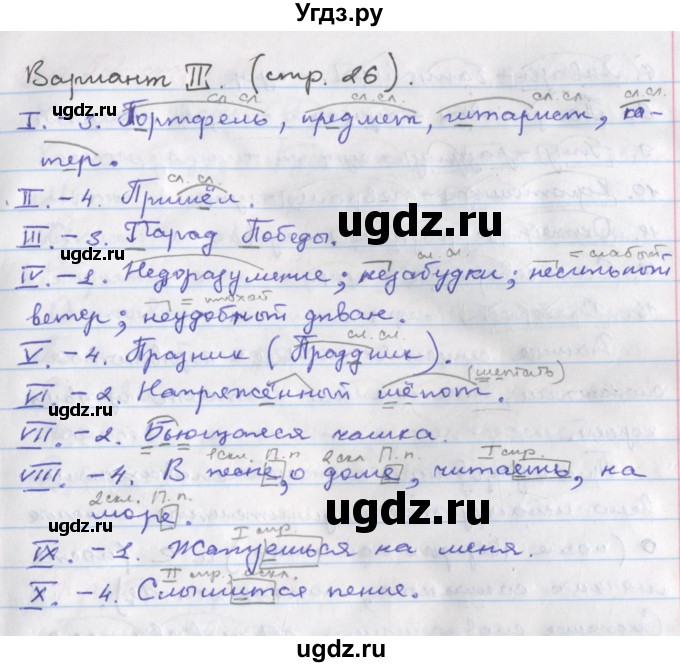 Угдз.ру
Вариант III. (стр. 26).
сл. сл. сл. сл. сл. сл. сл. сл.
I. - 3. Портфель, предмет, гитарист, ка-
тер.
сл. сл.
II. - 4. Пришёл.
ugdz.ru
III - 3. Парад Победы.
ugdz.ru
сл. сл. = слабый
IV. - 1. Недоразумение; незабудки; несильный
= плохой
ветер; неудобный диван.
ugdz.ru
сл. сл.
V. - 4. Празник (Праздник).
(шептать)
VI - 2. Напряжённый шёпот.
ugdz.ru
VII. - 2. Бьющаяся чашка.
1скл. П.п. 2скл. П.п. I спр.
VIII. - 4. В песне, о доме, читаешь, на
ugdz.ru
2скл. П.п.
море.
ugdz.ru
I спр.
IX. - 1. Жалуешься на меня.
II спр.
X. - 4. Слышится пение.
ugdz.ru
ugdz.ru